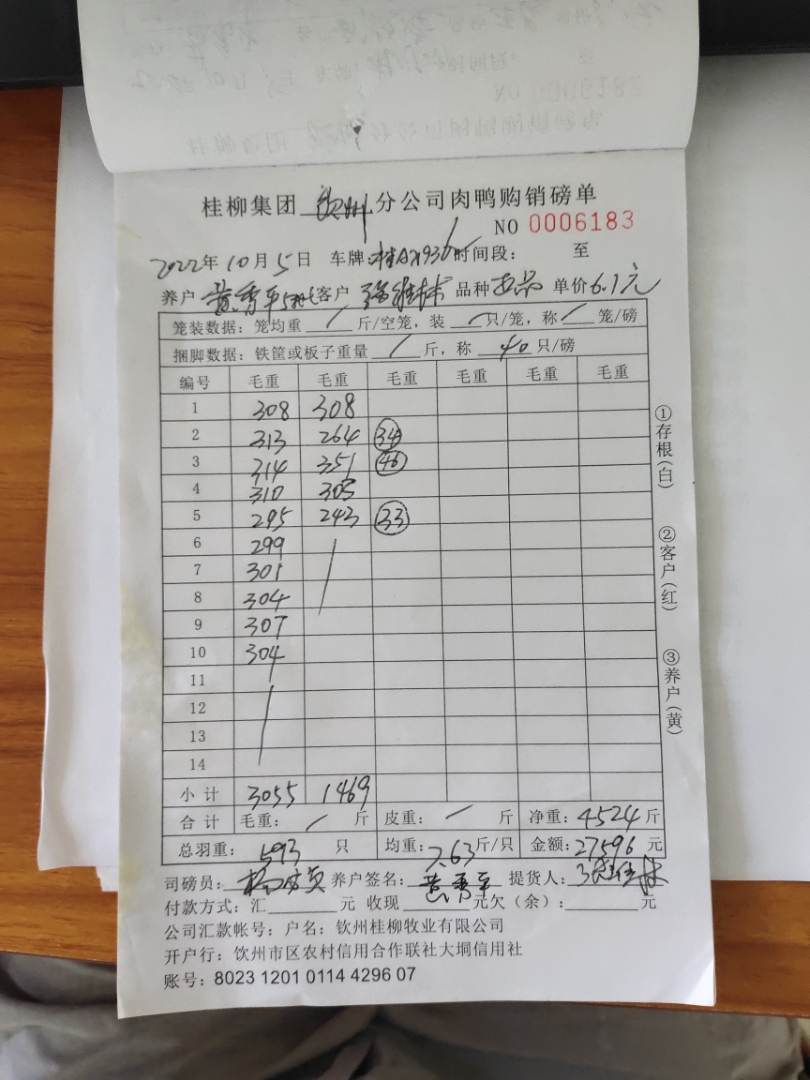 桂柳集团 钦州 分公司肉鸭购销磅单
NO 0006183
2022年10月5日 车牌: 时间段: 至
养户 黄秀平 客户 品种 单价6.1元
笼装数据: 笼均重 / 斤/空笼, 装 / 只/笼, 称 / 笼/磅
捆脚数据: 铁筐或板子重量 / 斤, 称 40 只/磅
编号 毛重 毛重 毛重 毛重 毛重 毛重
1 308 308
2 313 264 34
3 314 351 46
4 310 303
5 295 243 33
6 299
7 301
8 304
9 307
10 304
11
12
13
14
小计 3055 1469
合计 毛重: / 斤 皮重: / 斤 净重: 4524 斤
总羽重: 593 只 均重: 7.63 斤/只 金额: 27596 元
司磅员: 养户签名: 黄秀平 提货人:
付款方式: 汇 元 收现 元欠(余): 元
公司汇款帐号: 户名: 钦州桂柳牧业有限公司
开户行: 钦州市区农村信用合作联社大垌信用社
账号: 8023 1201 0114 4296 07
①存根(白)
②客户(红)
③养户(黄)